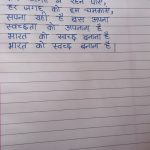 रहन पाए,
हर जगह को हम चमकाए,
सपना यही है बस अपना
स्वच्छता को अपनाना है
भारत को स्वच्छ बनाना है
भारत को स्वच्छ बनाना है।